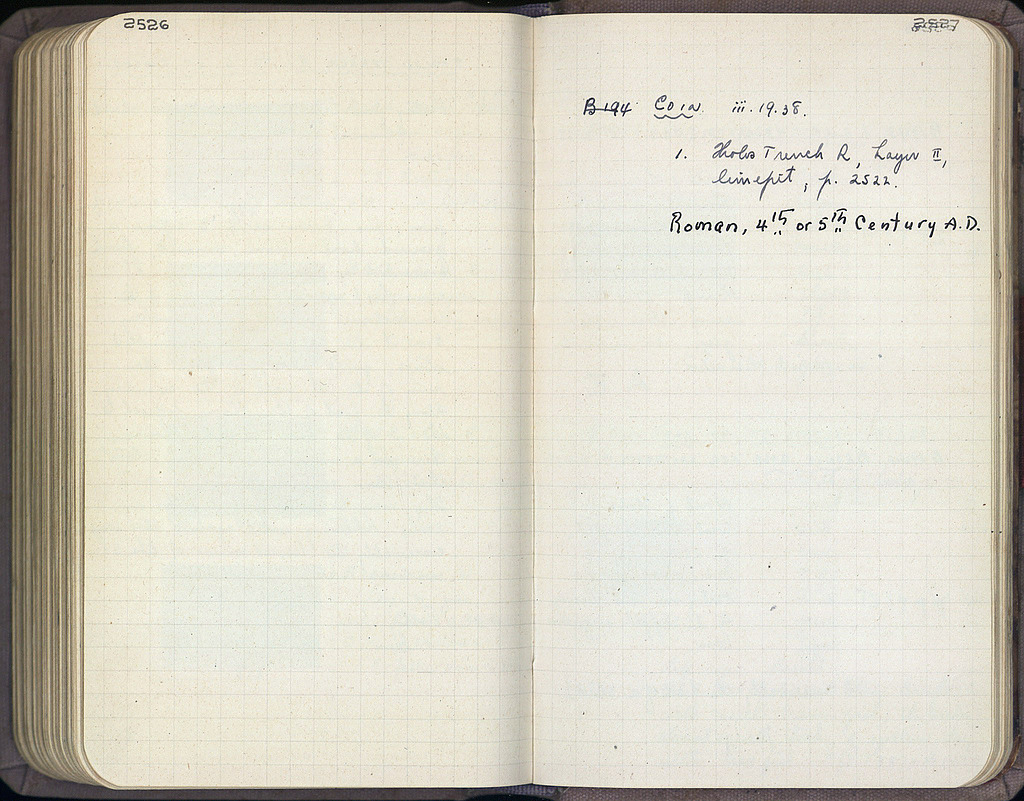 2526
2527
B 194 Coin iii.19.38.
1. Trench R, Layer II,
limepit, p. 2522.
Roman, 4th or 5th Century A.D.